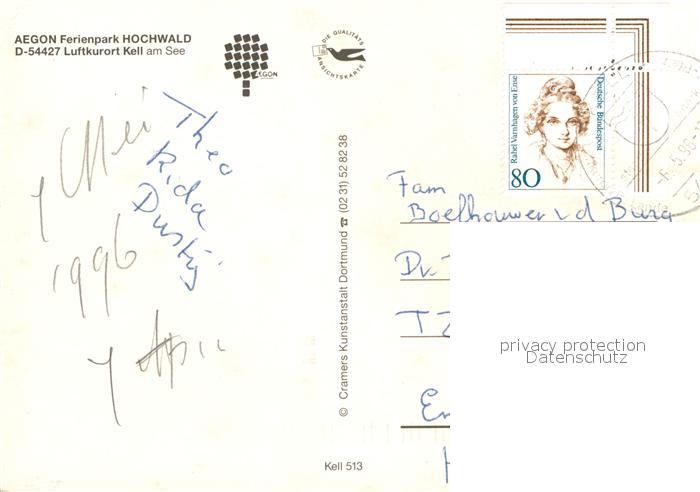 AEGON Ferienpark HOCHWALD
D-54427 Luftkurort Kell am See
AEGON
DIE QUALITÄTS
ANSICHTSKARTE
Mei
1996
Theo
Rida
Dustij
© Cramers Kunstanstalt Dortmund ☎ (02 31) 52 82 38
Kell 513
Rahel Varnhagen von Ense
Deutsche Bundespost
80
Fam
Boelhouwer v d Burg
Dr.
privacy protection
Datenschutz